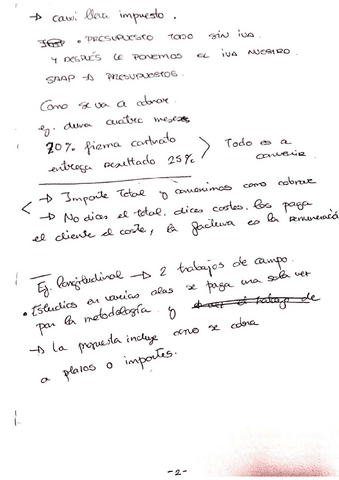 → cawi lleva impuesto.
• PRESUPUESTO TODO SIN IVA
Y DESPUÉS LE PONEMOS EL IVA NUESTRO.
→ PRESUPUESTOS.
Cómo se va a cobrar.
ej. dura cuatro meses
20% firma contrato
entrega resultado 25%
Todo es a
convenir
→ Importe Total y convenimos como cobrar
→ No dices el total, dices costes. los paga
el cliente el coste, la factura es la remuneració
Ej. longitudinal → 2 trabajos de campo.
• Estudios en varias olas se paga una sola vez
por la metodología y
→ La propuesta incluye cómo se cobra
a plazos o importes.
-2-